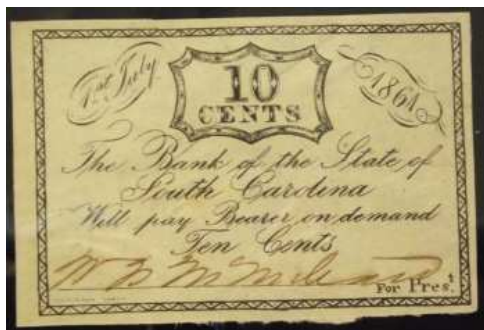 1st July
10
CENTS
1861
The Bank of the State of
South Carolina
Will pay Bearer on demand
Ten Cents
For Prest.